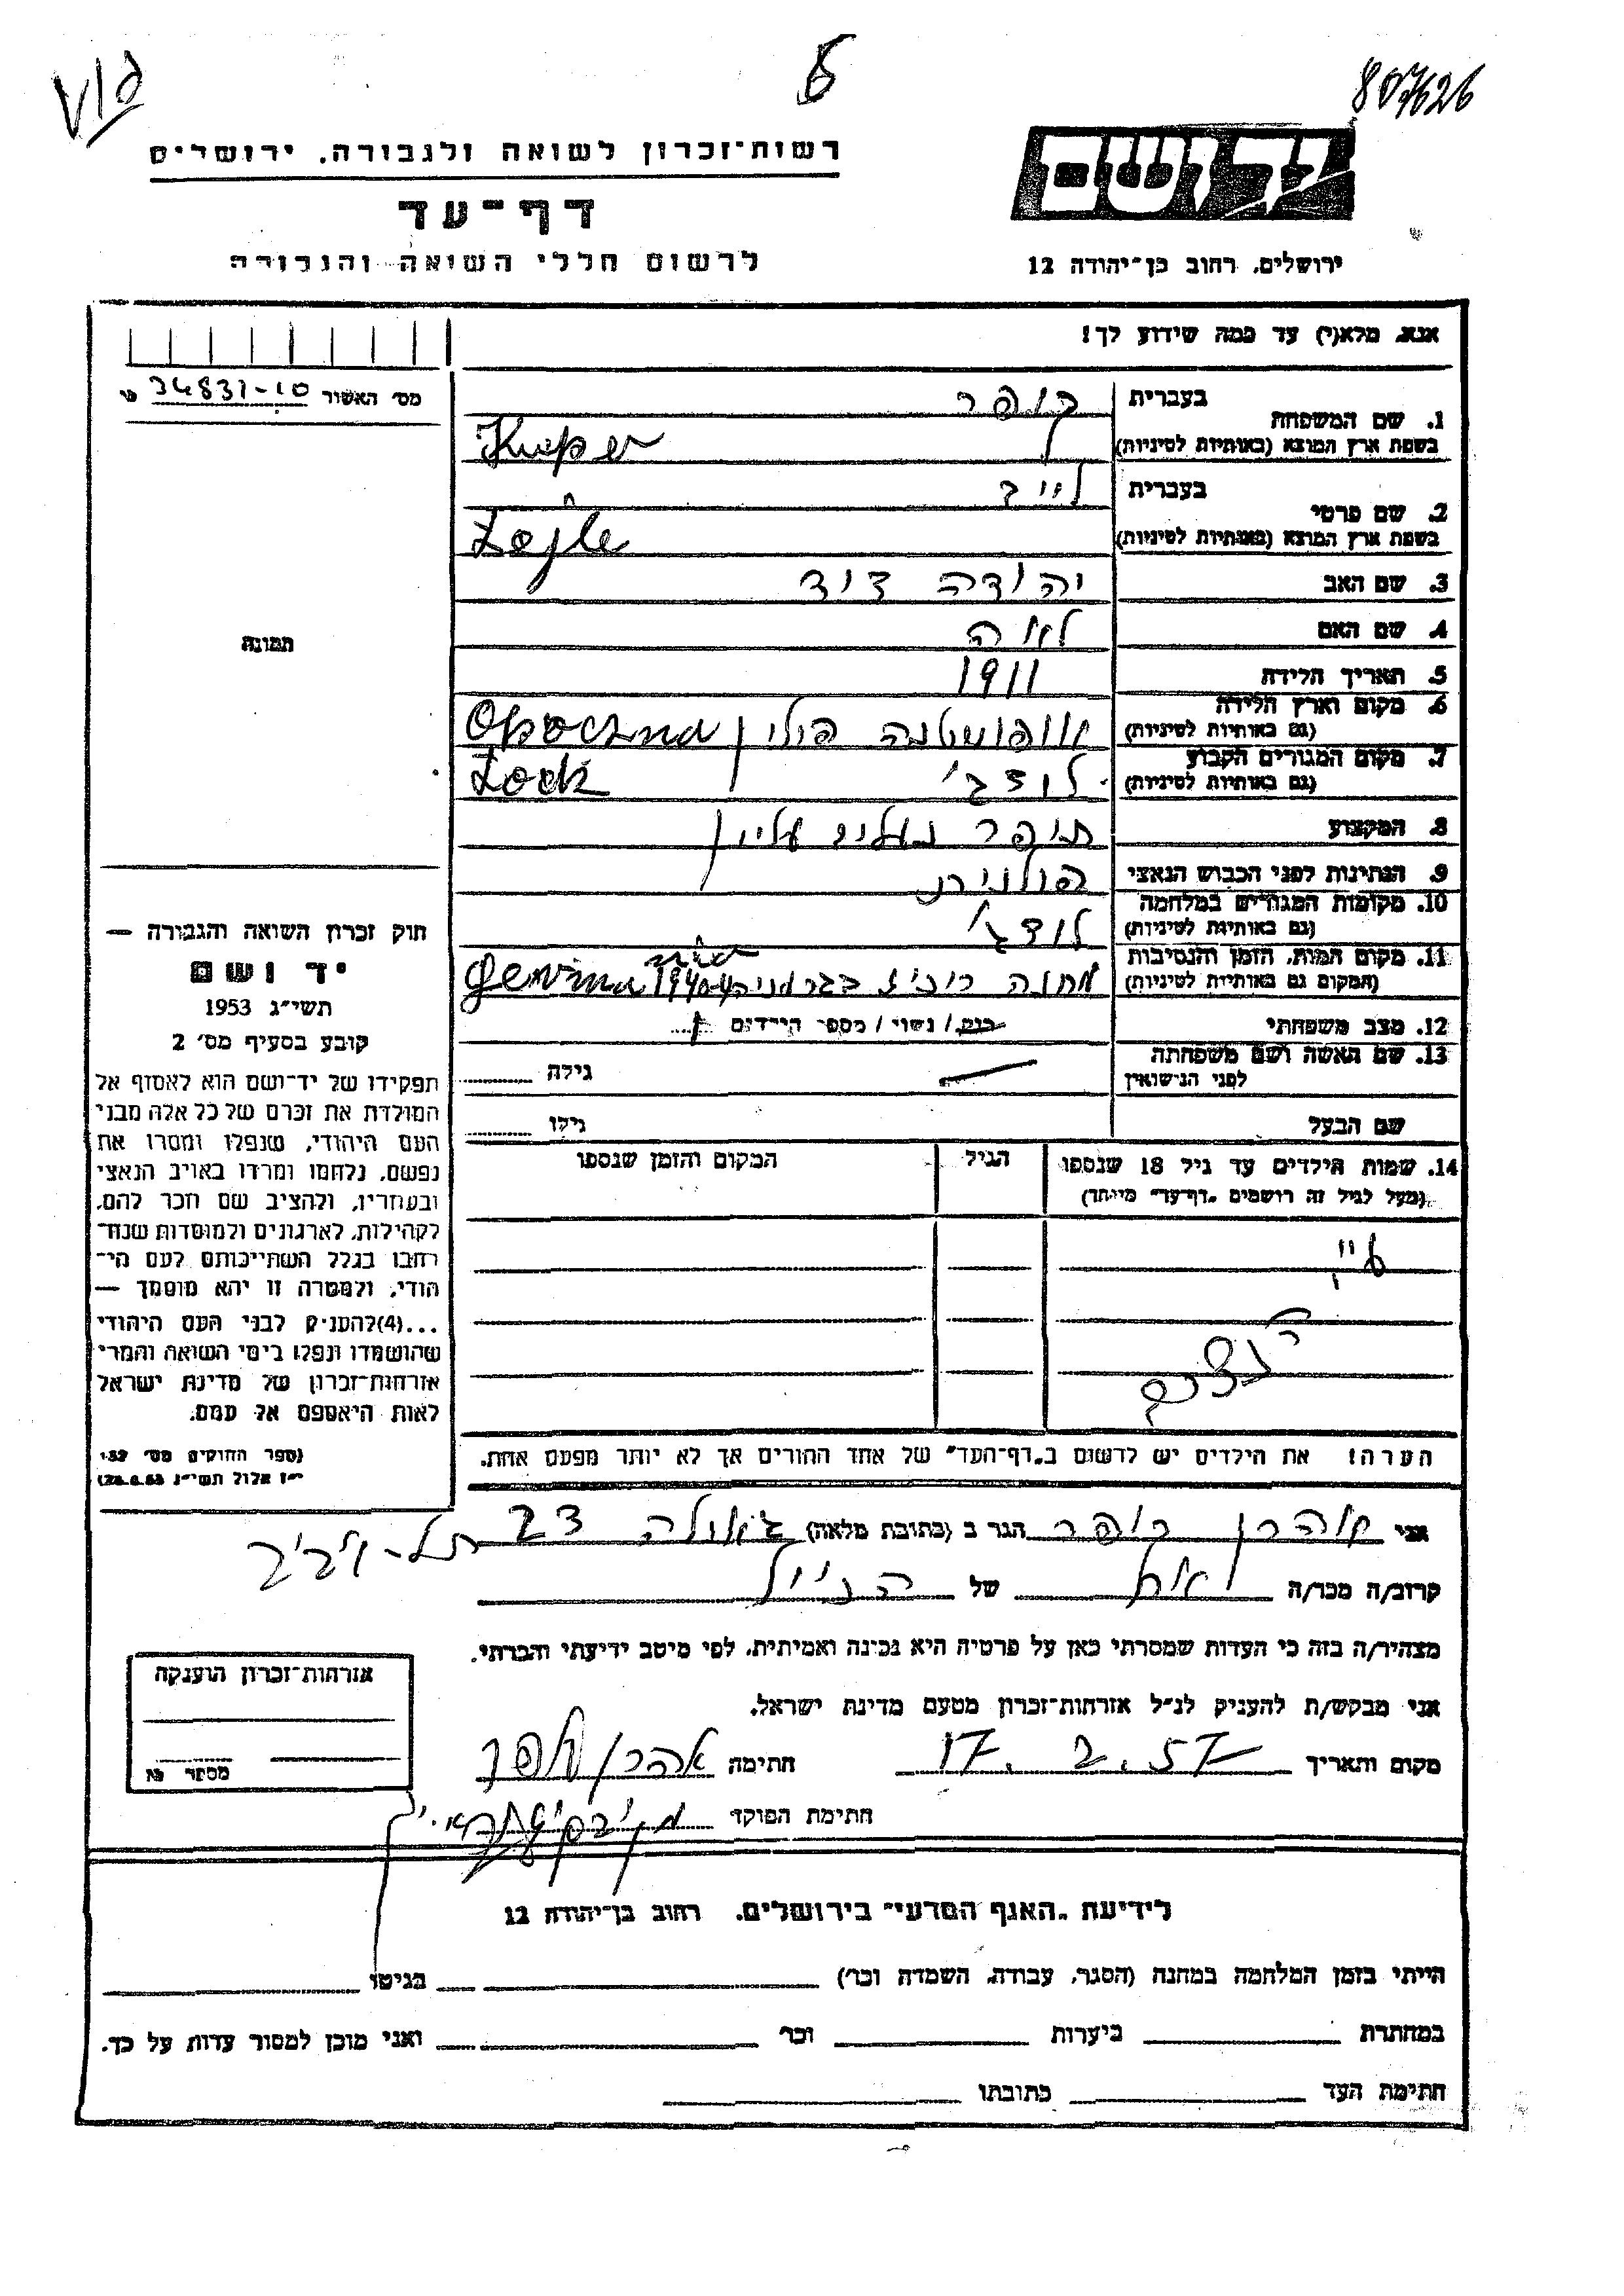 807626
רשות־זכרון לשואה ולגבורה. ירושלים
דף־עד
לרשום חללי השואה והגבורה
יד ושם
ירושלים. רחוב בן־יהודה 12
אנא. מלא(י) עד כמה שידוע לך!
מס׳ האשור 34831-10
1. שם המשפחה בעברית קופר
בשפת ארץ המוצא (באותיות לטיניות) Kuper
2. שם פרטי בעברית לייב
בשפת ארץ המוצא (באותיות לטיניות)
3. שם האב יהודה דוד
4. שם האם לאה
5. תאריך הלידה 1911
6. מקום וארץ הלידה
(גם באותיות לטיניות) פולין Opoczna
7. מקום המגורים הקבוע
(גם באותיות לטיניות) לודג׳
8. המקצוע תופר
9. הנתינות לפני הכבוש הנאצי
10. מקומות המגורים במלחמה
(גם באותיות לטיניות) לודג׳
11. מקום המות. הזמן והנסיבות
(המקום גם באותיות לטיניות) מחנה ריכוז בגרמניה
12. מצב משפחתי רוק/ נשוי/ מספר הילדים
13. שם האשה ושם משפחתה
לפני הנישואין גילה
שם הבעל גילו
14. שמות הילדים עד גיל 18 שנספו הגיל המקום והזמן שנספו
(מעל לגיל זה רושמים "דף־עד" מיוחד)
תמונה
חוק זכרון השואה והגבורה —
יד ושם
תשי״ג 1953
קובע בסעיף מס׳ 2
תפקידו של יד־ושם הוא לאסוף אל
המולדת את זכרם של כל אלה מבני
העם היהודי, שנפלו ומסרו את
נפשם. נלחמו ומרדו באויב הנאצי
ובעוזריו, ולהציב שם וזכר להם,
לקהילות, לארגונים ולמוסדות שנח־
רבו בגלל השתייכותם לעם הי־
הודי, ולמטרה זו יהא מוסמך —
...(4)להעניק לבני העם היהודי
שהושמדו ונפלו בימי השואה והמרי
אזרחות־זכרון של מדינת ישראל
לאות היאספם אל עמם.
(ספר החוקים מס׳ 132
י״ז אלול תשי״ג 28.8.53)
הערה! את הילדים יש לרשום ב"דף־העד" של אחד ההורים אך לא יותר מפעם אחת.
אני אהרן קופר הגר ב (כתובת מלאה) גאולה 23 תל-אביב
קרוב/ה מכר/ה אח של הנ״ל
מצהיר/ה בזה כי העדות שמסרתי כאן על פרטיה היא נכונה ואמיתית. לפי מיטב ידיעתי והכרתי.
אני מבקש/ת להעניק לנ״ל אזרחות־זכרון מטעם מדינת ישראל.
מקום ותאריך 17.2.57 חתימה אהרן קופר
חתימת הפוקד
אזרחות־זכרון הוענקה
מספר
לידיעת "האגף המדעי" בירושלים. רחוב בן־יהודה 12
הייתי בזמן המלחמה במחנה (הסגר. עבודה. השמדה וכו׳) בגיטו
במחתרת ביערות וכו׳ ואני מוכן למסור עדות על כך.
חתימת העד כתובתו